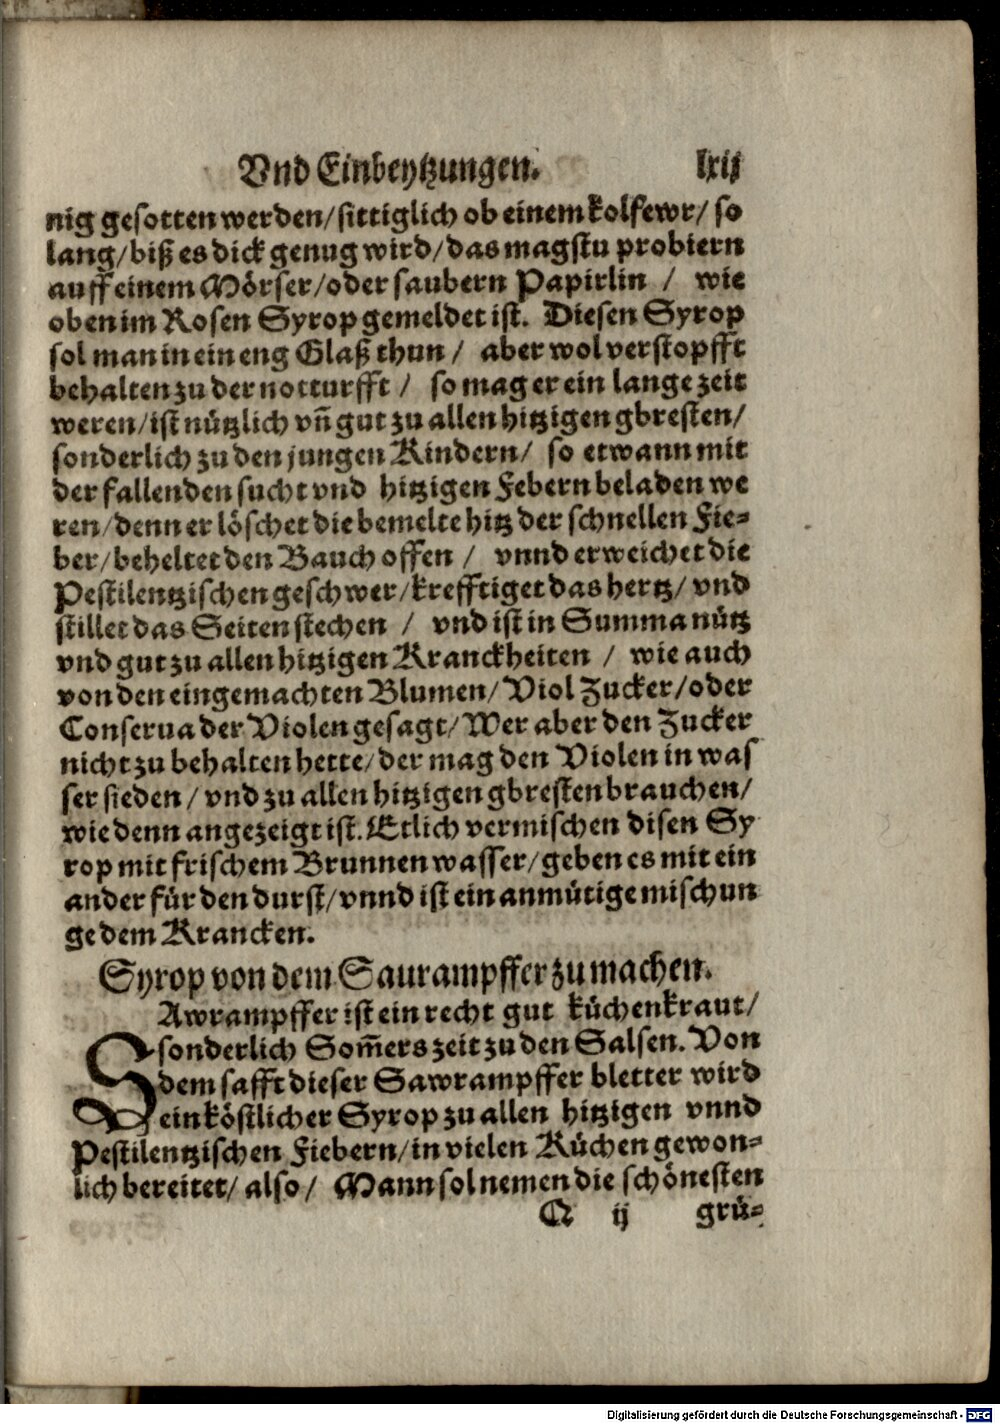 Vnd Einbeytzungen. lxij
nig gesotten werden/ sittiglich ob einem kolfewr/ so
lang/ biß es dick genug wird/ das magstu probiern
auff einem Mörser/ oder saubern Papirlin / wie
oben im Rosen Syrop gemeldet ist. Diesen Syrop
sol man in ein eng Glaß thun / aber wol verstopfft
behalten zu der notturfft / so mag er ein lange zeit
weren/ ist nützlich vñ gut zu allen hitzigen gbresten/
sonderlich zu den jungen Kindern/ so etwann mit
der fallenden sucht vnd hitzigen Febern beladen we
ren/ denn er löschet die bemelte hitz der schnellen Fie-
ber/ beheltet den Bauch offen / vnnd erweichet die
Pestilentzischen geschwer/ krefftiget das hertz/ vnd
stillet das Seitenstechen / vnd ist in Summa nütz
vnd gut zu allen hitzigen Kranckheiten / wie auch
von den eingemachten Blumen/ Viol Zucker/ oder
Conserua der Violen gesagt/ Wer aber den Zucker
nicht zu behalten hette/ der mag den Violen in was
ser sieden / vnd zu allen hitzigen gbresten brauchen/
wie denn angezeigt ist. Etlich vermischen disen Sy
rop mit frischem Brunnenwasser/ geben es mit ein
ander für den durst/ vnnd ist ein anmütige mischun
ge dem Krancken.
Syrop von dem Saurampffer zu machen.
SAwrampffer ist ein recht gut küchenkraut/
sonderlich Som̃erszeit zu den Salsen. Von
dem safft dieser Sawrampffer bletter wird
ein köstlicher Syrop zu allen hitzigen vnnd
Pestilentzischen Fiebern/ in vielen Küchen gewon-
lich bereitet/ also/ Mann sol nemen die schönesten
Q ij grü-
Digitalisierung gefördert durch die Deutsche Forschungsgemeinschaft - DFG